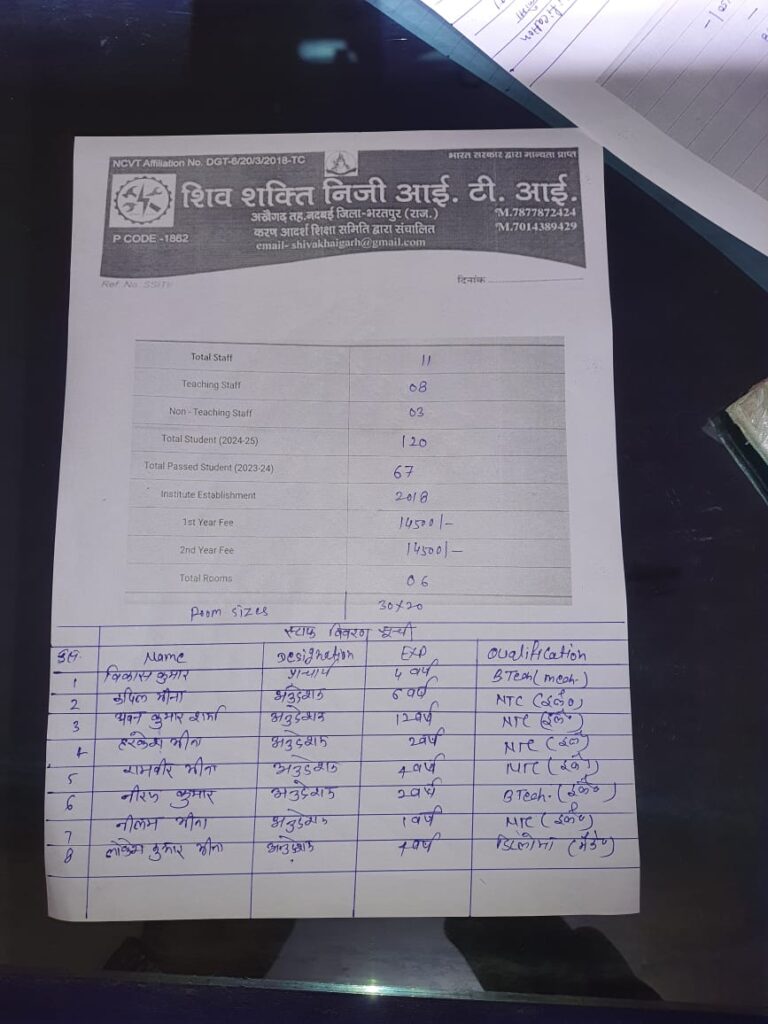 NCVT Affiliation No. DGT-6/20/3/2018-TC
भारत सरकार द्वारा मान्यता प्राप्त
शिव शक्ति निजी आई. टी. आई.
अखैगढ़ तह.नदबई जिला-भरतपुर (राज.)
M.7877872424
P CODE -1862
करण आदर्श शिक्षा समिति द्वारा संचालित
M.7014389429
email- shivakhaigarh@gmail.com
Ref. No. SSITI/
दिनांक
Total Staff 11
Teaching Staff 08
Non - Teaching Staff 03
Total Student (2024-25) 120
Total Passed Student (2023-24) 67
Institute Establishment 2018
1st Year Fee 14500/-
2nd Year Fee 14500/-
Total Rooms 06
Room sizes 30x20
स्टाफ विवरण सूची
Name Designation EXP Qualification
1 विकास कुमार प्राचार्य 4 वर्ष BTech (mech.)
2 मीना अनुदेशक 6 वर्ष NTC (इलै०)
3 कुमार शर्मा अनुदेशक 12 वर्ष NTC (इलै०)
4 हरकेश मीना अनुदेशक 2 वर्ष NTC (इलै०)
5 रामवीर मीना अनुदेशक 4 वर्ष NTC (इलै०)
6 नीरज कुमार अनुदेशक 2 वर्ष BTech. (इलै०)
7 नीलम मीना अनुदेशक 1 वर्ष NTC (इलै०)
8 लोकेश कुमार मीना अनुदेशक 4 वर्ष डिप्लोमा